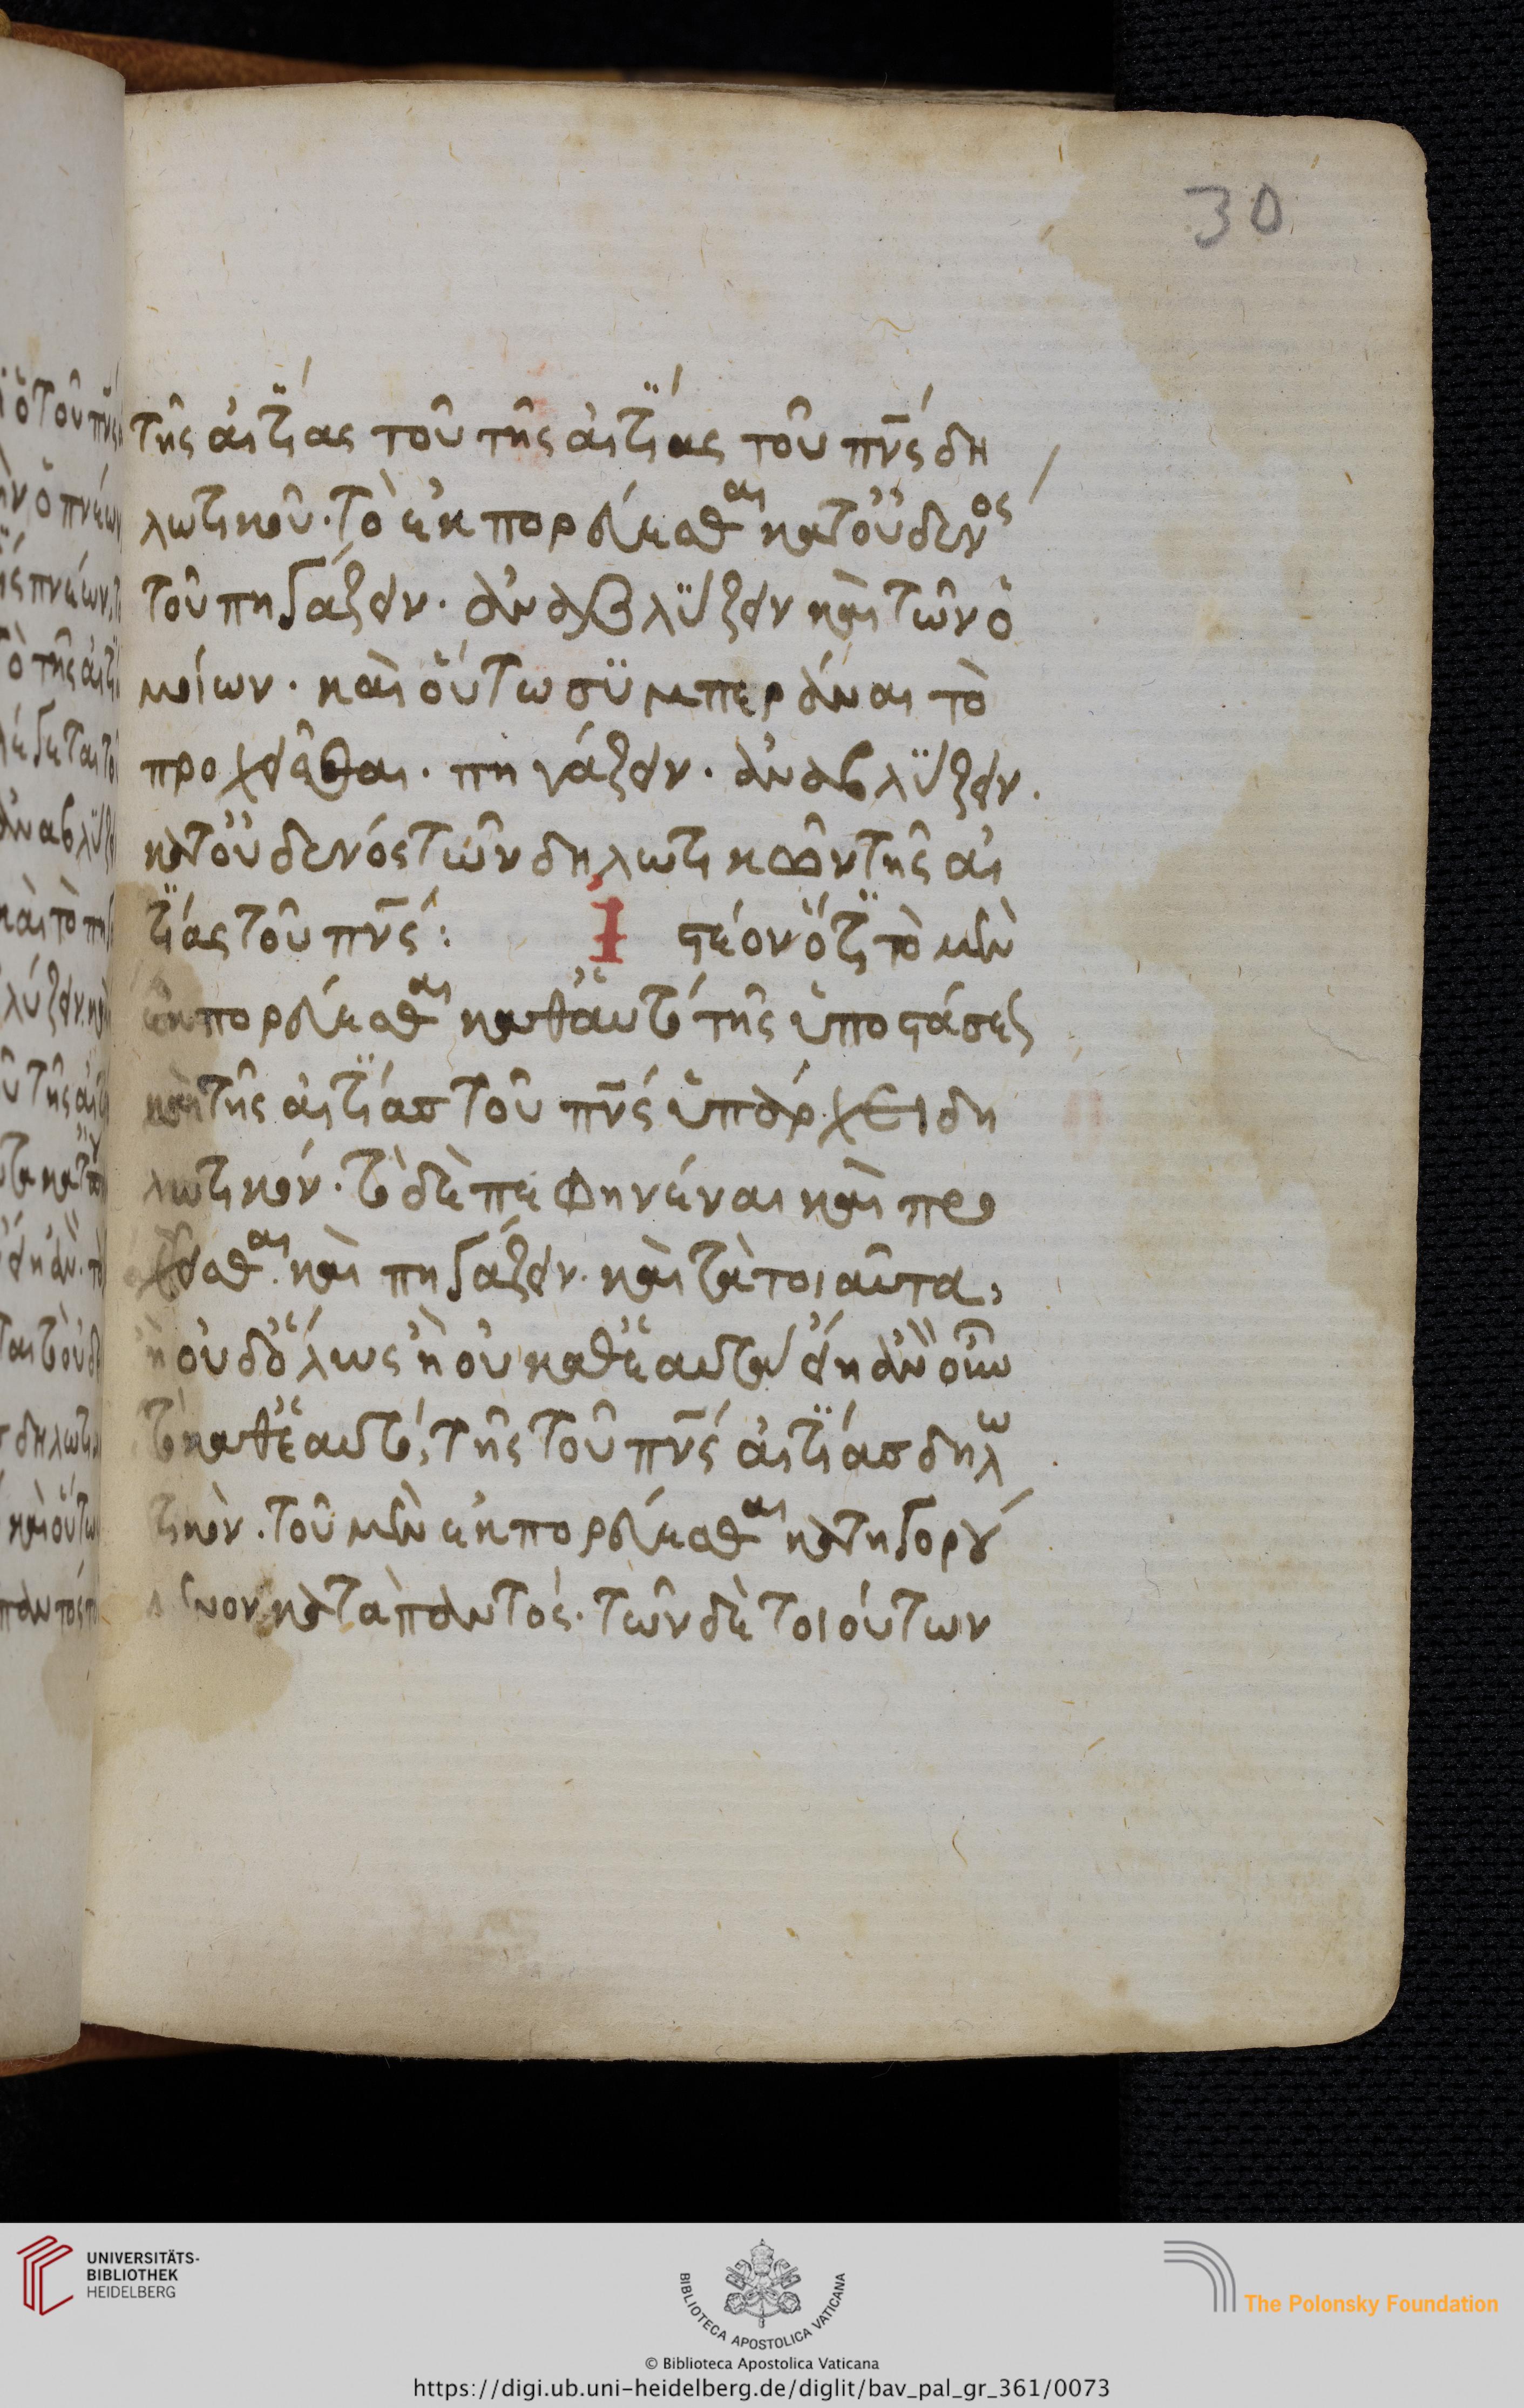 30
τῆς αἰτίας τοῦ τῆς αἰτίας τοῦ πνς δη
λωτικοῦ. τὸ ἐκπορεύεσθαι κατ' οὐδενος
τοῦ πηγάζειν. ἀναβλΰζειν καὶ τῶν ὁ
μοίων. καὶ οὕτω σϋμπεράναι τὸ
προχεῖσθαι. πηγάζειν. ἀναβλΰζειν.
κατ' οὐδενός τῶν δηλωτικῶν τῆς αἰ
τίας τοῦ πνς: Ἰστέον ὅτι τὸ μὲν
ἐκπορεύεσθαι καθ' αὑτό τῆς ὑποστάσεως
καὶ τῆς αἰτίασ τοῦ πνς ὑπάρχει δη
λωτικόν. τὸ δὲ πεφηνέναι καὶ προ
χεῖσθαι. καὶ πηγάζειν. καὶ τὰ τοιαῦτα,
ἢ οὐδ' ὅλως ἢ οὐ καθ' ἑαυτά εἴη ἂν
τὸ καθ' ἑαυτό, τῆς τοῦ πνς αἰτίασ δηλω
τικὸν. τοῦ μὲν ἐκπορεύεσθαι κατηγορού
κατὰ παντός. τῶν δὲ τοιούτων
UNIVERSITÄTS-
BIBLIOTHEK
HEIDELBERG
BIBLIOTECA APOSTOLICA VATICANA
The Polonsky Foundation
© Biblioteca Apostolica Vaticana
https://digi.ub.uni-heidelberg.de/diglit/bav_pal_gr_361/0073